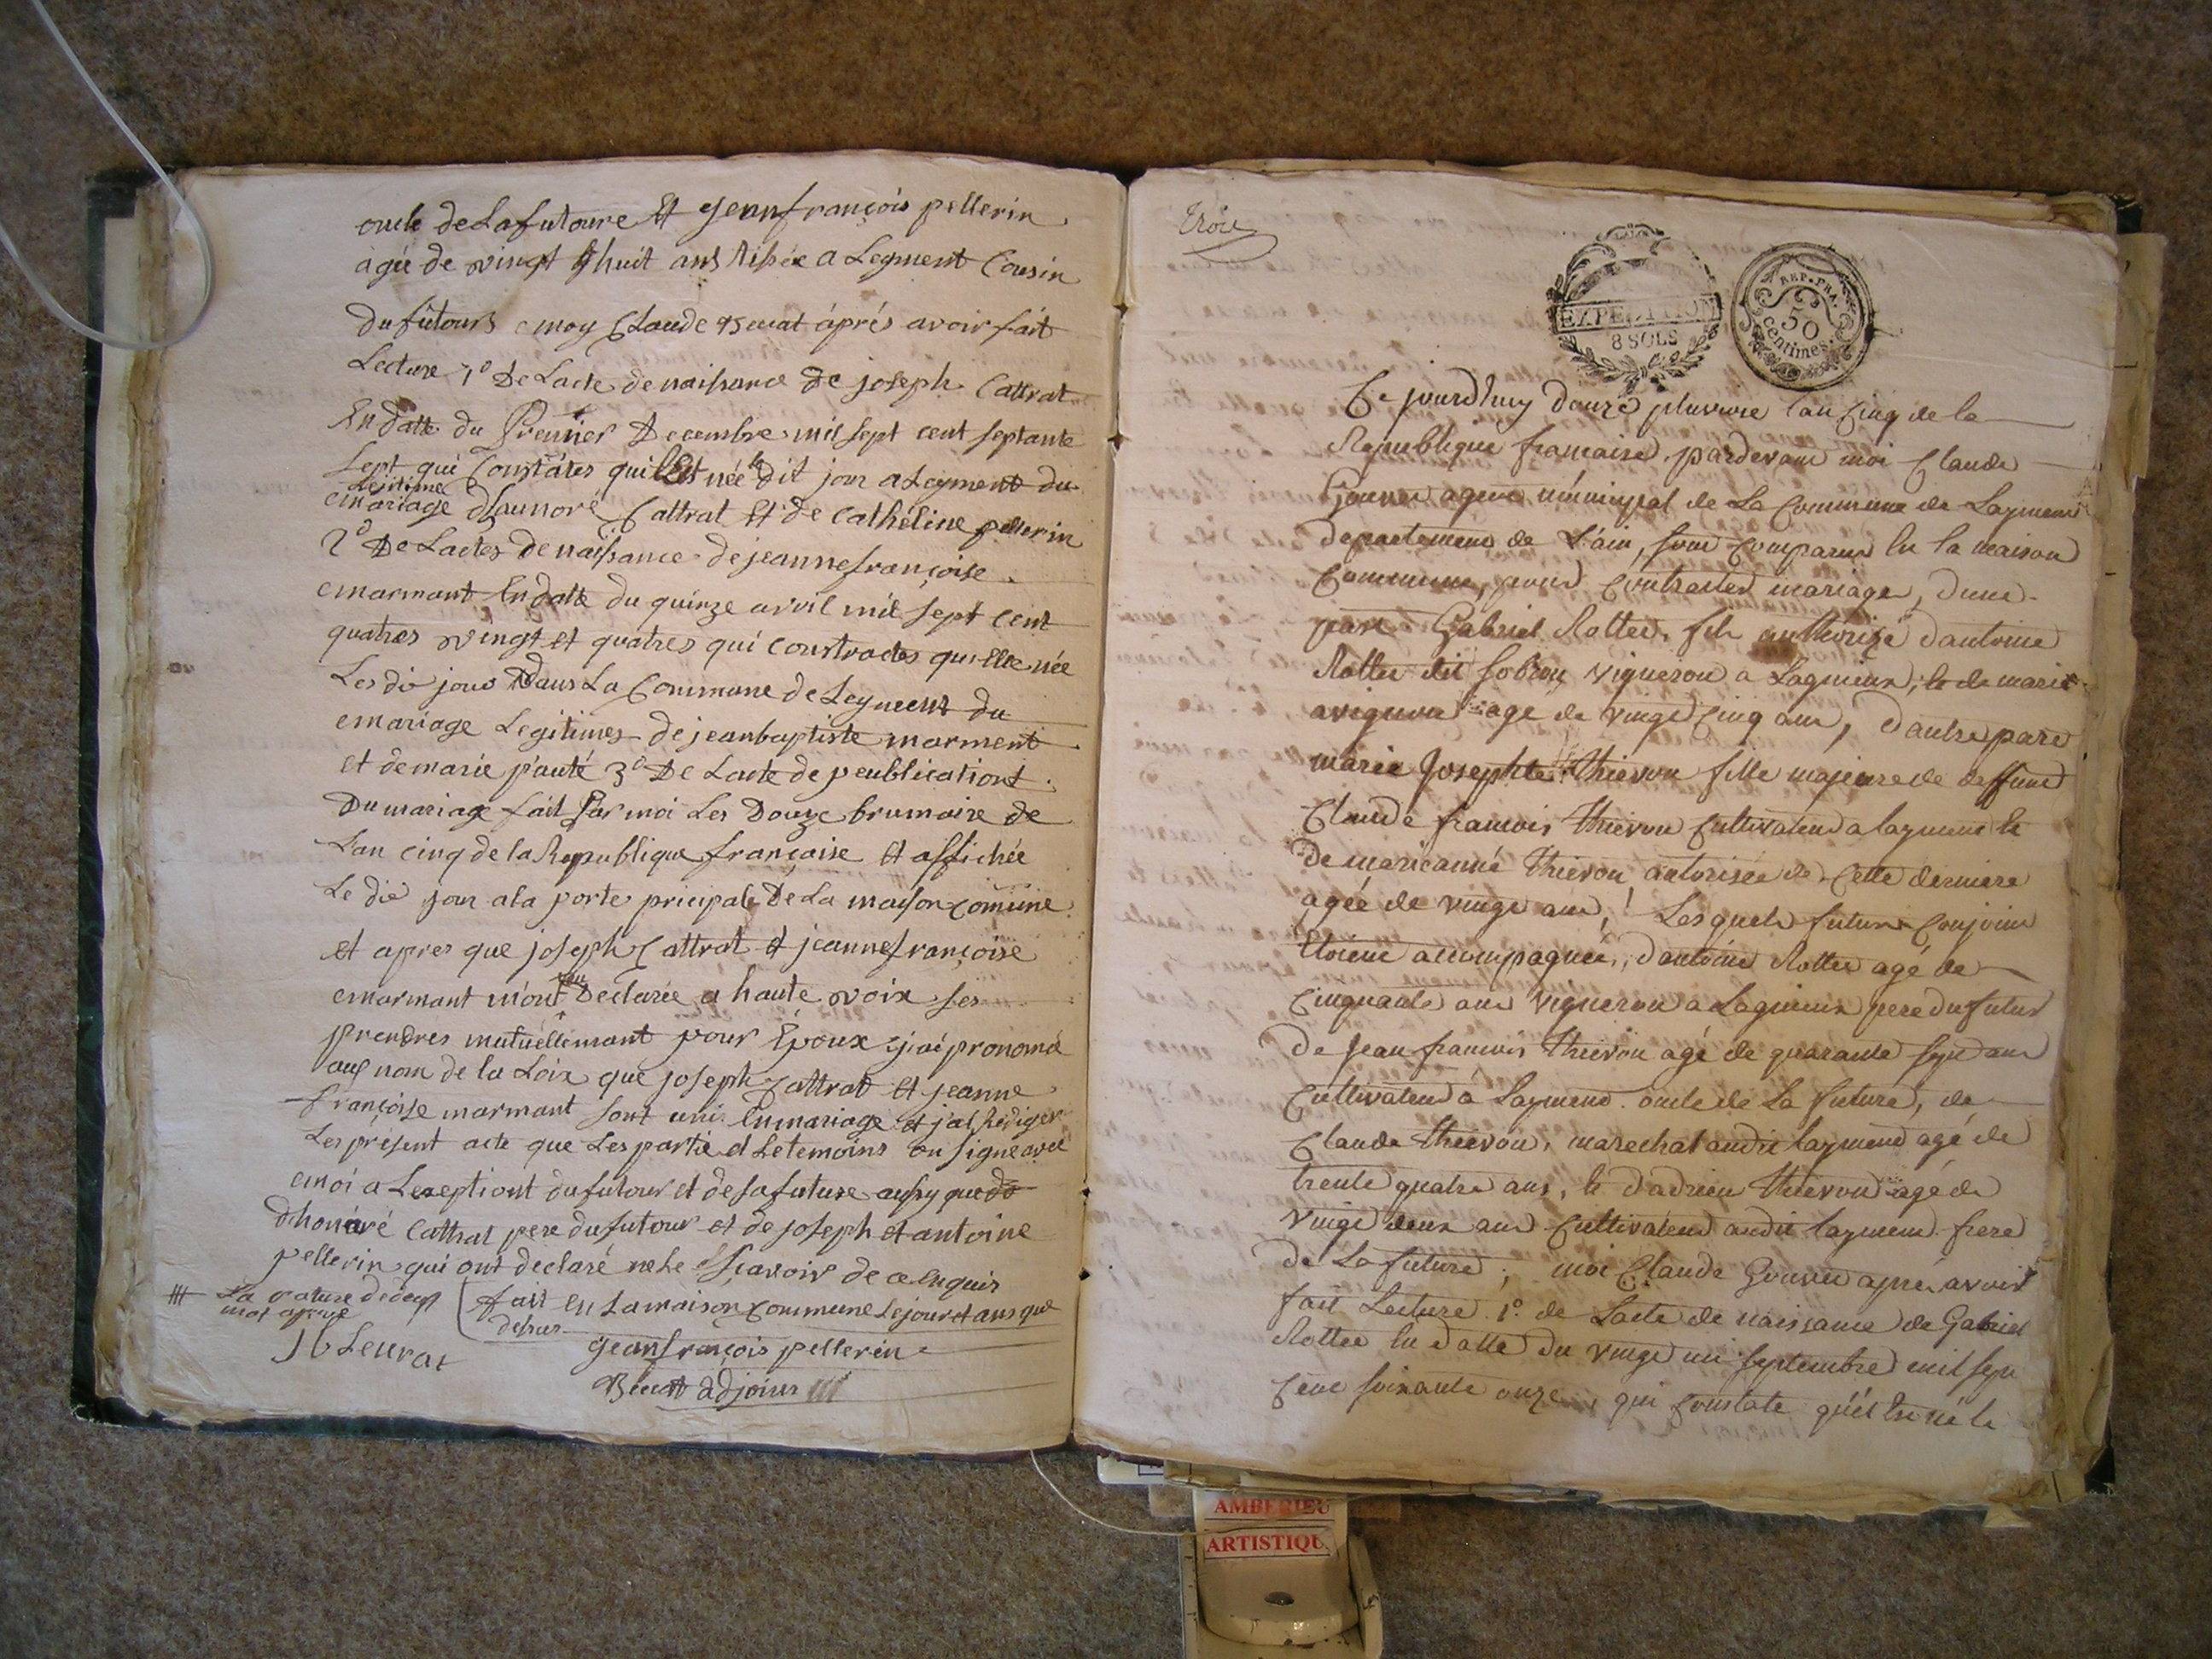 oncle de Lafutoure Et Jean françois pellerin
àgée de vingt & huit ans à Leyment Cousin
du futours emoy Claude après avoir fait
Lecture 1º De Lacte de naissance de joseph Cattrat
En datte du Premier Decembre mil sept cent septante
Sept qui Constates quil Est née le dit jour a Leyment du
legitime
emariage dhaunoré Cattrat Et de Catheline pellerin
2º De Lactes de naissance de jeanne françoise
emarmant En datte du quinze avril mil sept cent
quatres vingt et quatres qui constrates quelle née
Les di jour Dans La Commune de Leyment du
emariage Legitimes de jean baptiste marment
et de marie pauté 3º De Lacte de peublicationt
Du mariage fait Par moi Les Douze brumaire de
Lan cinq de la Republique française Et affichée
Le die jour a la porte pricipale De La maison comune
et apres que joseph Cattrat et jeanne françoise
emarmant m'ont Declarée a haute voix ses
prendres mutuellemant pour Époux j'aé prononcé
auf nom de la Loix que joseph Cattrat et jeanne
françoise marmant sont uni En mariage et j'ai Rediger
Les présent acte que Les partie et Le temoins on signe avec
emoi a Lexeptiont du futour et de sa future aussy que do
dhonoré Cattrat pere du futour et de joseph et antoine
pellerin qui ont declaré ne le sçavoir de ce Enquis
La rature de deup
mot apruvé
fait En La maison commune Le jour et ans que
desus
Jb Leurat
Jean françois pellerin
adjoins
Trois
EXPEDITION
8 SOLS
REP. FRA.
50
Centimes.
Ce jourdhuy douze pluviose l'an Cinq de la
Republique francaise, pardevant moi Claude
agent municipal de La Commune de Layment
departement de L'ain, sont Comparus En la maison
Commune, pour Contracter mariage, d'une
part Gabriel Rottee fils authorisé d'antoine
Rottee dit vigneron a Lagnieux, et de marie
avignon agé de vingt Cinq ans, d'autre part
marie Josephte Thievon fille majeure de deffunt
Claude francois Thievon Cultivateur a layment Et
de marieanne Thievon autorisée de Cette derniere
agée de vingt ans, Lesquels futurs Conjoints
Etoient accompagnés, d'antoine Rottee agé de
Cinquante ans vigneron a Lagnieux pere du futur
de Jean francois Thievon agé de quarante sept ans
Cultivateur à Layment oncle de La future, de
Claude thievon, marechal audit layment agé de
trente quatre ans, Et d'adrien Thievon agé de
vingt deux ans Cultivateur audit layment frere
de La future; moi Claude après avoir
fait Lecture 1º. de L'acte de naissance de Gabriel
Rottee En datte du vingt un septembre mil sept
Cent soixante onze, qui Constate qu'il Est né le
AMBERIEU
ARTISTIQU